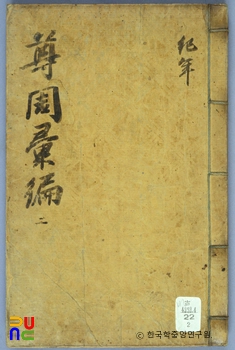 紀年
尊周彙編
二
22
2
PUNC
© 한국학중앙연구원